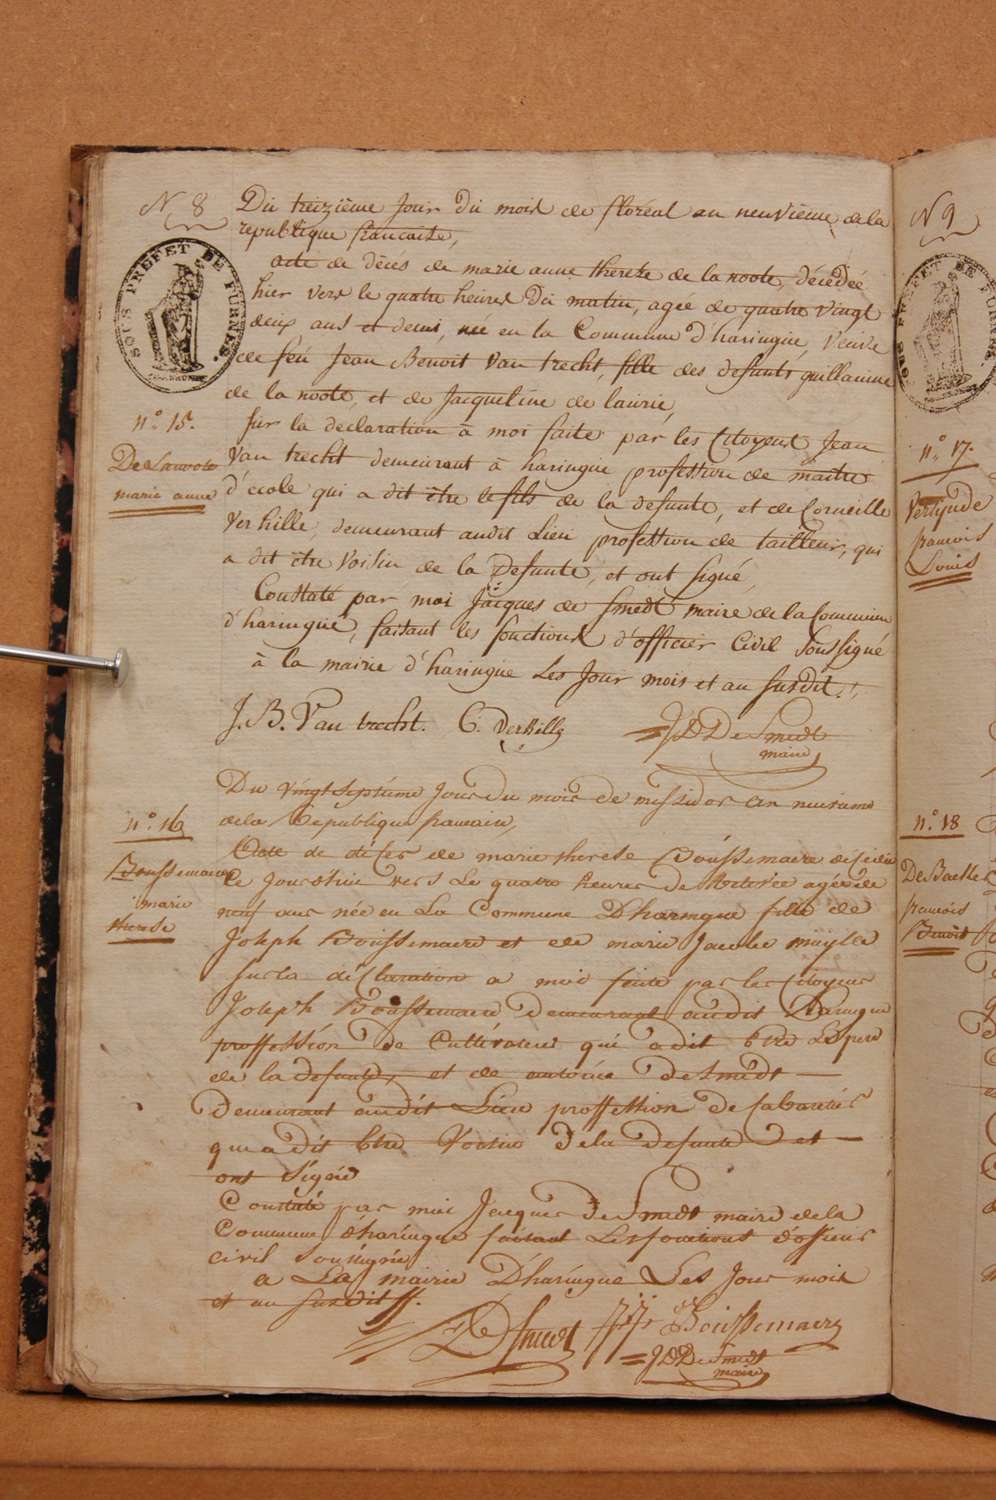 N 8
SOUS PREFET DE FURNES.
n.° 15.
De Lanoote
marie anne
Du treizième Jour du mois de floréal an neuvième de la
republique francaise,
acte de déces de marie anne therese de la noote, décédée
hier vers le quatre heures du matin, agée de quatre vingt
deux ans et demi, née en la Commune d'haringue, veuve
de feu Jean Benoit Van trecht, fille des defunts guillaume
de la noote, et de Jacqueline de lairie,
Sur la declaration à moi faite par les Citoyens Jean
Van trecht demeurant à haringue profession de maitre
d'école qui a dit être le fils de la defunte, et de Corneille
Verhille, demeurant audit Lieu profession de tailleur, qui
a dit être voisin de la Defunte, et ont signé,
Constaté par moi Jacques de Smedt maire de la Commune
d'haringue, faisant les fonctions d'officier Civil Soussigné
à la mairie d'haringue Les Jour mois et an susdit.
J. B. Van trecht. C. Verhille
J D De Smedt
maire
n.° 16
Boussemaere
marie
therese
Du vingt septieme Jour du mois de messidor an neuvieme
de la Republique francaise,
Acte de déces de marie therese Boussemaere décédée
Ce Jourdhui vers Le quatre heures de Relevée agée de
neuf ans née en La Commune D'haringue fille de
Joseph Boussemaere et de marie Jacobe muylle
sur la déclaration a moi faite par les citoyens
Joseph Boussemaere demeurant audit Haringue
proffession de Cultivateur qui a dit Etre Le pere
de la defunte, et de antoine De Smedt
Demeurant audit Lieu proffession De Cabaretier
qui a dit Etre Voisin De la Defunte et
ont Signé
Constaté par moi Jacques De Smedt maire de la
Commune d'haringue faisant Les fonctions d'officier
civil soussigné
a La mairie D'haringue Les Jour mois
et an susdit
D Smedt J J Boussemaere
J D De Smedt
maire
N 9
n.° 17.
Verlynde
francois
Louis
n.° 18
De Backer
francois
Benoit